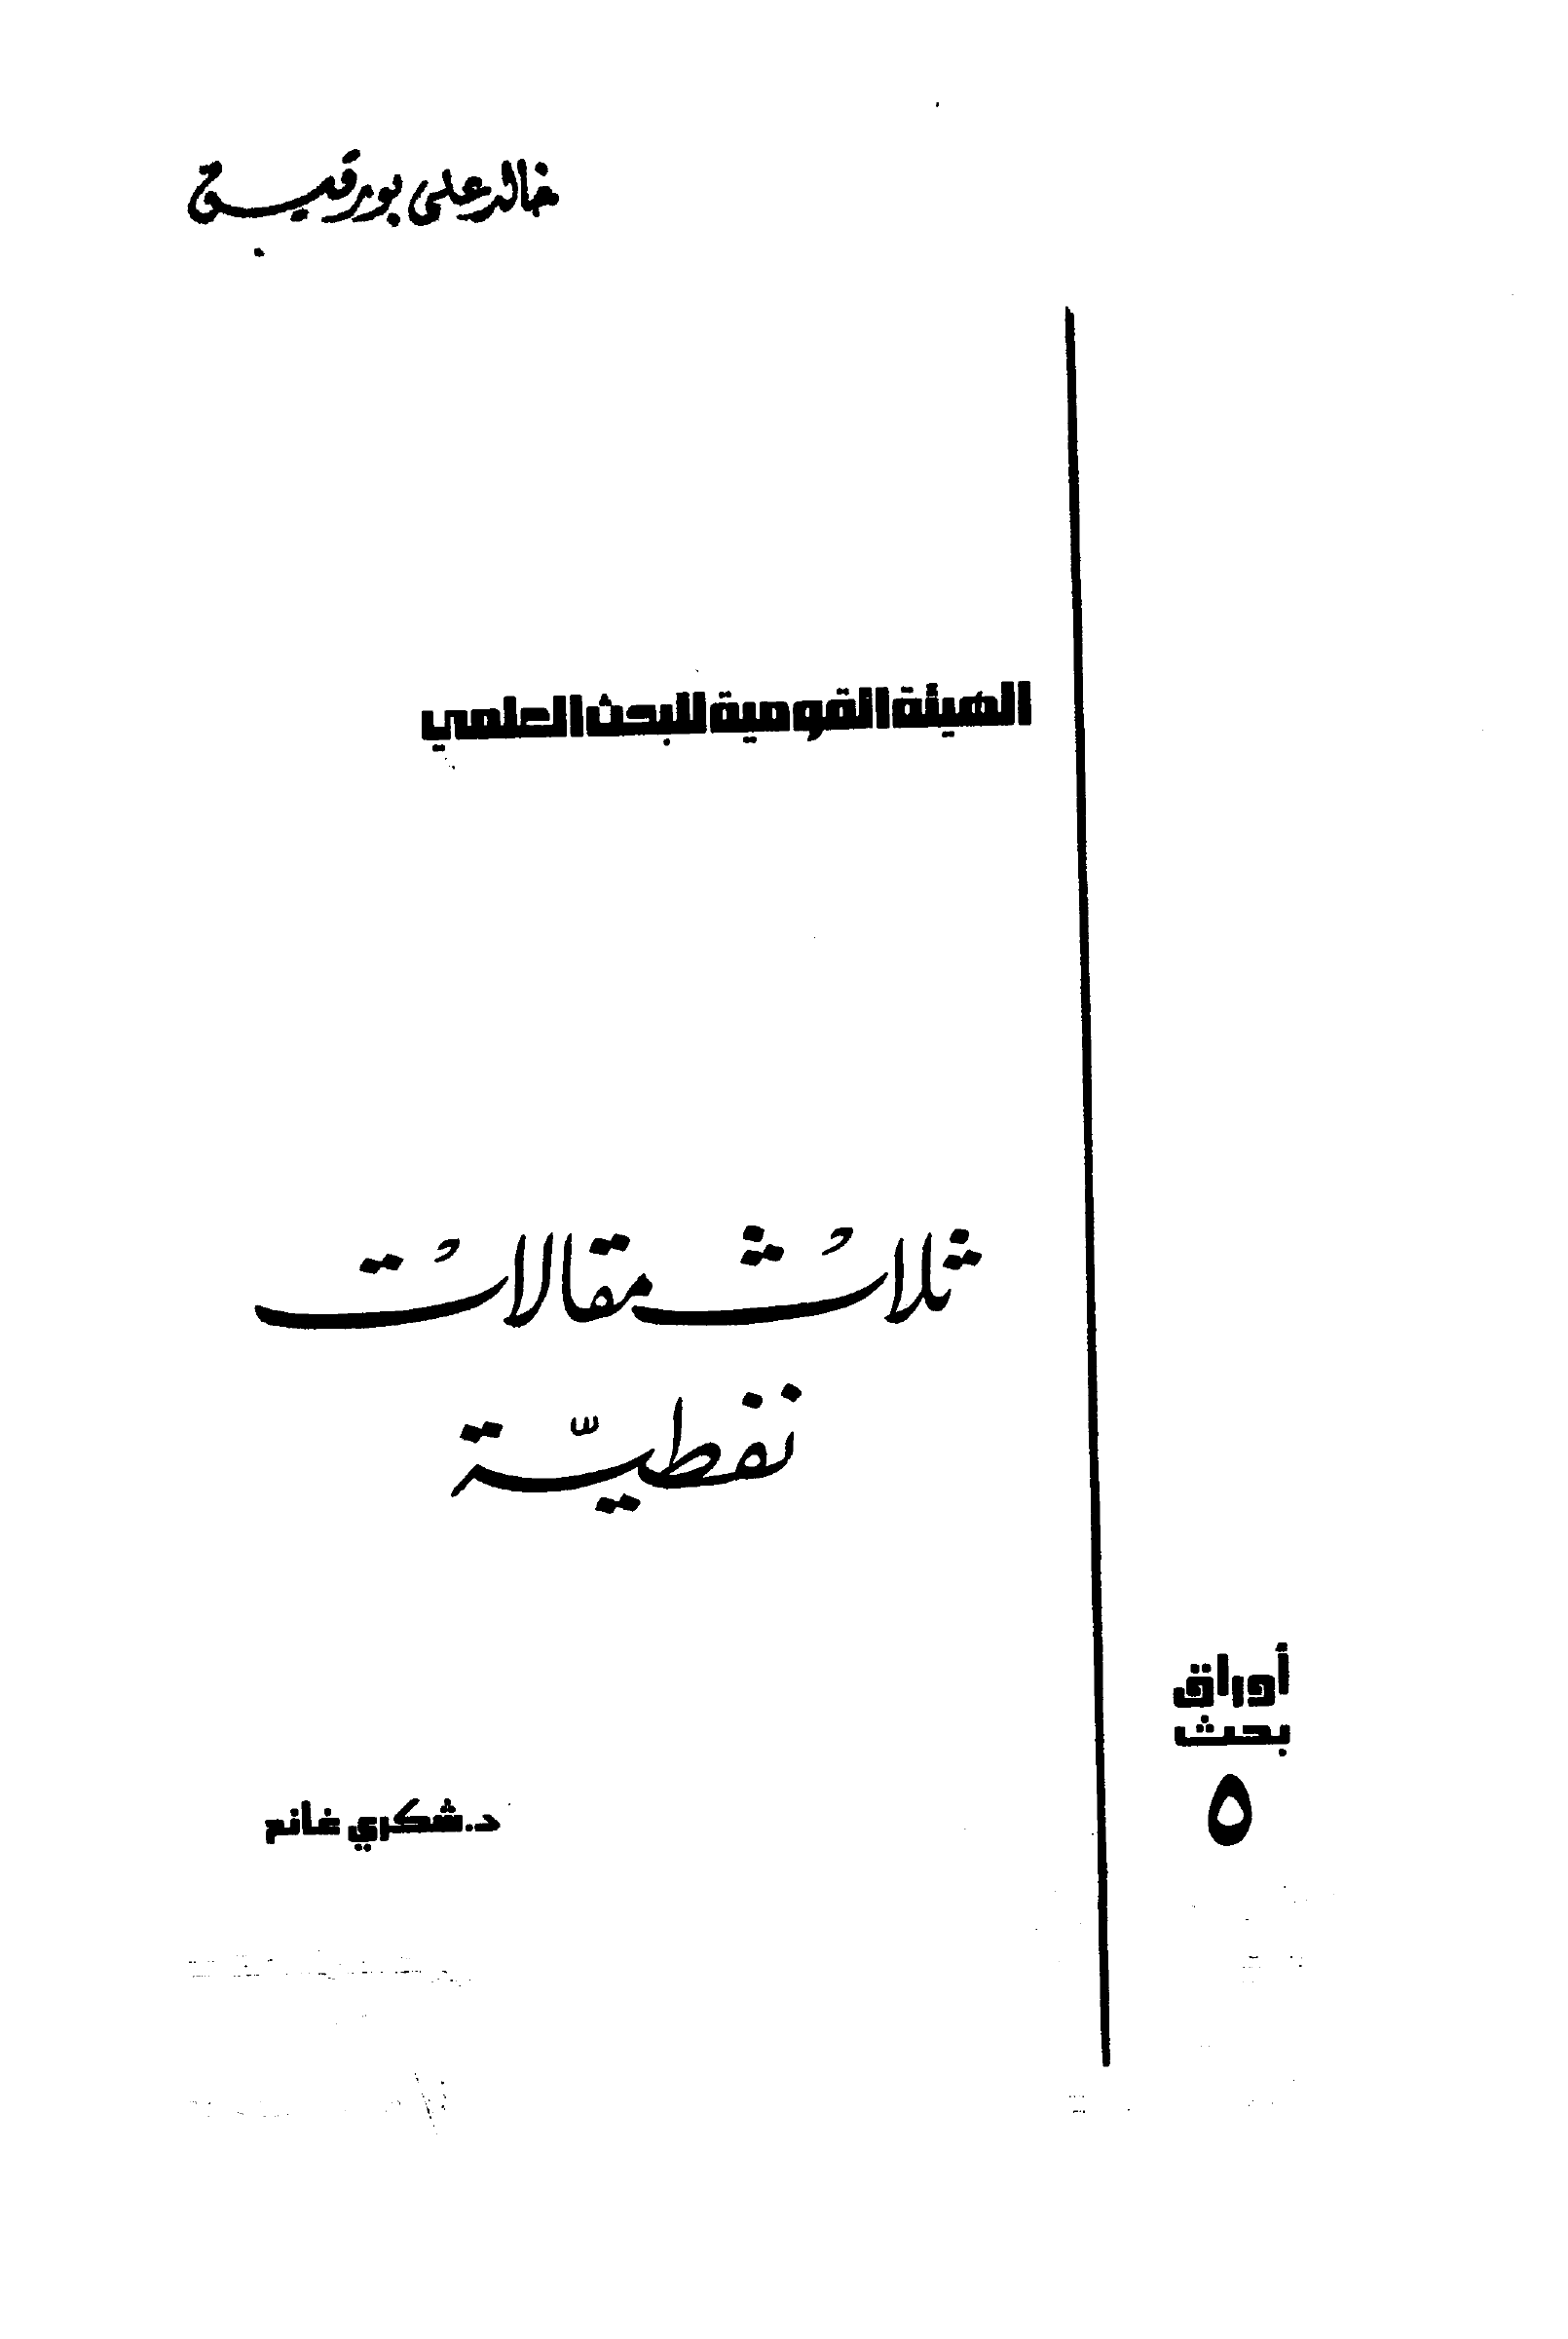 خالد علي بورقيبة
الهيئة القومية للبحث العلمي
ثلاثُ مقالاتُ
نفطيّة
أوراق
بحث
٥
د. شكري غانم